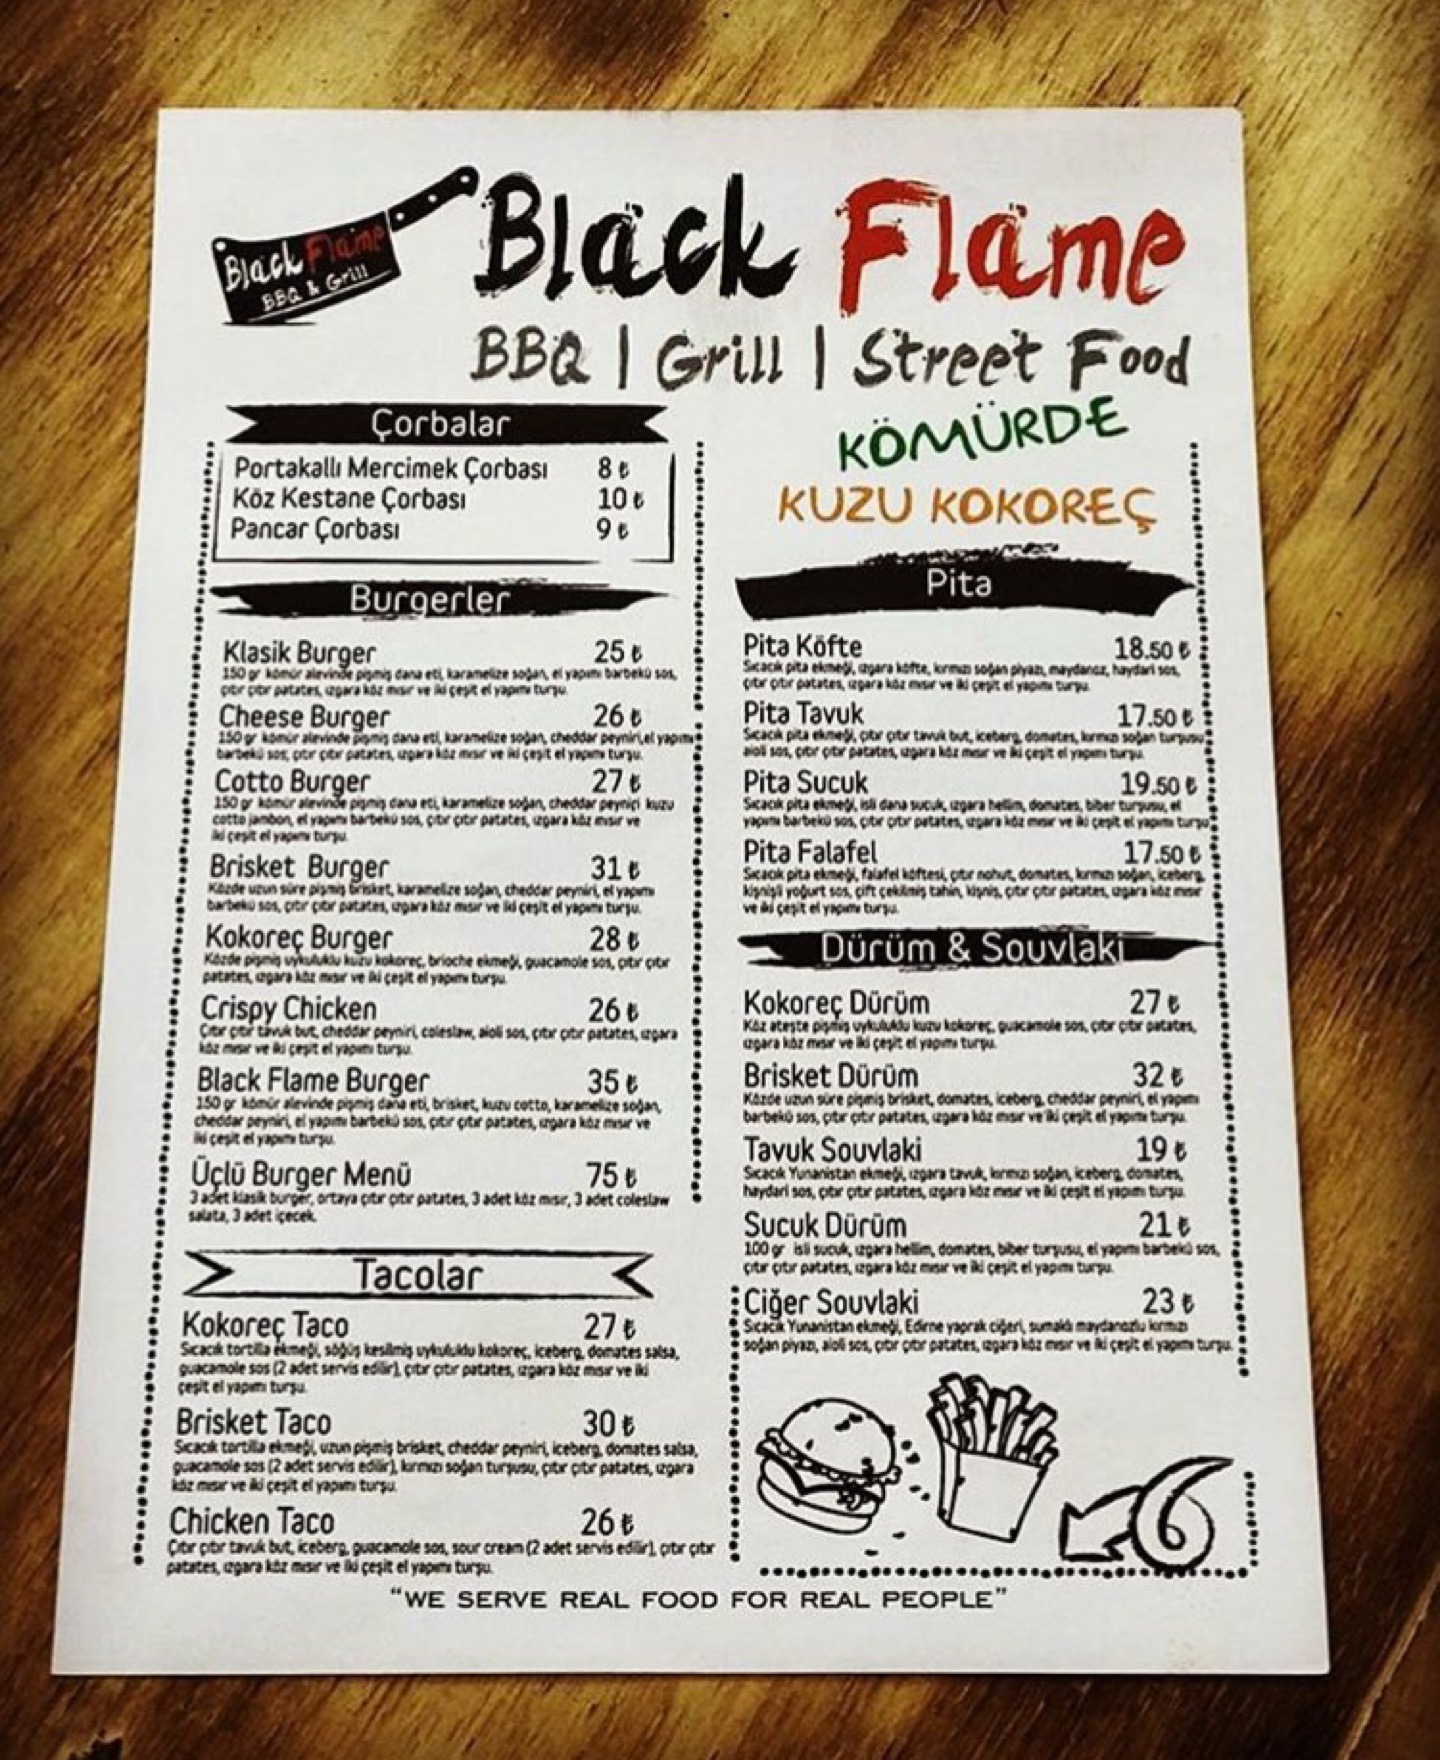 Black Flame
BBQ & Grill
Black Flame
BBQ | Grill | Street Food
Çorbalar
Portakallı Mercimek Çorbası 8 ₺
Köz Kestane Çorbası 10 ₺
Pancar Çorbası 9 ₺
Burgerler
Klasik Burger 25 ₺
150 gr kömür alevinde pişmiş dana eti, karamelize soğan, el yapımı barbekü sos,
çıtır çıtır patates, ızgara köz mısır ve iki çeşit el yapımı turşu.
Cheese Burger 26 ₺
150 gr kömür alevinde pişmiş dana eti, karamelize soğan, cheddar peyniri,el yapımı
barbekü sos, çıtır çıtır patates, ızgara köz mısır ve iki çeşit el yapımı turşu.
Cotto Burger 27 ₺
150 gr kömür alevinde pişmiş dana eti, karamelize soğan, cheddar peyniri kuzu
cotto jambon, el yapımı barbekü sos, çıtır çıtır patates, ızgara köz mısır ve
iki çeşit el yapımı turşu.
Brisket Burger 31 ₺
Közde uzun süre pişmiş brisket, karamelize soğan, cheddar peyniri, el yapımı
barbekü sos, çıtır çıtır patates, ızgara köz mısır ve iki çeşit el yapımı turşu.
Kokoreç Burger 28 ₺
Közde pişmiş uykuluklu kuzu kokoreç, brioche ekmeği, guacamole sos, çıtır çıtır
patates, ızgara köz mısır ve iki çeşit el yapımı turşu.
Crispy Chicken 26 ₺
Çıtır çıtır tavuk but, cheddar peyniri, coleslaw, aioli sos, çıtır çıtır patates, ızgara
köz mısır ve iki çeşit el yapımı turşu.
Black Flame Burger 35 ₺
150 gr kömür alevinde pişmiş dana eti, brisket, kuzu cotto, karamelize soğan,
cheddar peyniri, el yapımı barbekü sos, çıtır çıtır patates, ızgara köz mısır ve
iki çeşit el yapımı turşu.
Üçlü Burger Menü 75 ₺
3 adet klasik burger, ortaya çıtır çıtır patates, 3 adet köz mısır, 3 adet coleslaw
salata, 3 adet içecek.
Tacolar
Kokoreç Taco 27 ₺
Sıcacık tortilla ekmeği, söğüş kesilmiş uykuluklu kokoreç, iceberg, domates salsa,
guacamole sos (2 adet servis edilir), çıtır çıtır patates, ızgara köz mısır ve iki
çeşit el yapımı turşu.
Brisket Taco 30 ₺
Sıcacık tortilla ekmeği, uzun pişmiş brisket, cheddar peyniri, iceberg, domates salsa,
guacamole sos (2 adet servis edilir), kırmızı soğan turşusu, çıtır çıtır patates, ızgara
köz mısır ve iki çeşit el yapımı turşu.
Chicken Taco 26 ₺
Çıtır çıtır tavuk but, iceberg, guacamole sos, sour cream (2 adet servis edilir), çıtır çıtır
patates, ızgara köz mısır ve iki çeşit el yapımı turşu.
KÖMÜRDE
KUZU KOKOREÇ
Pita
Pita Köfte 18.50 ₺
Sıcacık pita ekmeği, ızgara köfte, kırmızı soğan piyazı, maydanoz, haydari sos,
çıtır çıtır patates, ızgara köz mısır ve iki çeşit el yapımı turşu.
Pita Tavuk 17.50 ₺
Sıcacık pita ekmeği, çıtır çıtır tavuk but, iceberg, domates, kırmızı soğan turşusu
aioli sos, çıtır çıtır patates, ızgara köz mısır ve iki çeşit el yapımı turşu.
Pita Sucuk 19.50 ₺
Sıcacık pita ekmeği, isli dana sucuk, ızgara hellim, domates, biber turşusu, el
yapımı barbekü sos, çıtır çıtır patates, ızgara köz mısır ve iki çeşit el yapımı turşu
Pita Falafel 17.50 ₺
Sıcacık pita ekmeği, falafel köftesi, çıtır nohut, domates, kırmızı soğan, iceberg,
kişnişli yoğurt sos, çift çekilmiş tahin, kişniş, çıtır çıtır patates, ızgara köz mısır
ve iki çeşit el yapımı turşu.
Dürüm & Souvlaki
Kokoreç Dürüm 27 ₺
Köz ateşte pişmiş uykuluklu kuzu kokoreç, guacamole sos, çıtır çıtır patates,
ızgara köz mısır ve iki çeşit el yapımı turşu.
Brisket Dürüm 32 ₺
Közde uzun süre pişmiş brisket, domates, iceberg, cheddar peyniri, el yapımı
barbekü sos, çıtır çıtır patates, ızgara köz mısır ve iki çeşit el yapımı turşu.
Tavuk Souvlaki 19 ₺
Sıcacık Yunanistan ekmeği, ızgara tavuk, kırmızı soğan, iceberg, domates,
haydari sos, çıtır çıtır patates, ızgara köz mısır ve iki çeşit el yapımı turşu.
Sucuk Dürüm 21 ₺
100 gr isli sucuk, ızgara hellim, domates, biber turşusu, el yapımı barbekü sos,
çıtır çıtır patates, ızgara köz mısır ve iki çeşit el yapımı turşu.
Ciğer Souvlaki 23 ₺
Sıcacık Yunanistan ekmeği, Edirne yaprak ciğeri, sumaklı maydanozlu kırmızı
soğan piyazı, aioli sos, çıtır çıtır patates, ızgara köz mısır ve iki çeşit el yapımı turşu.
"WE SERVE REAL FOOD FOR REAL PEOPLE"